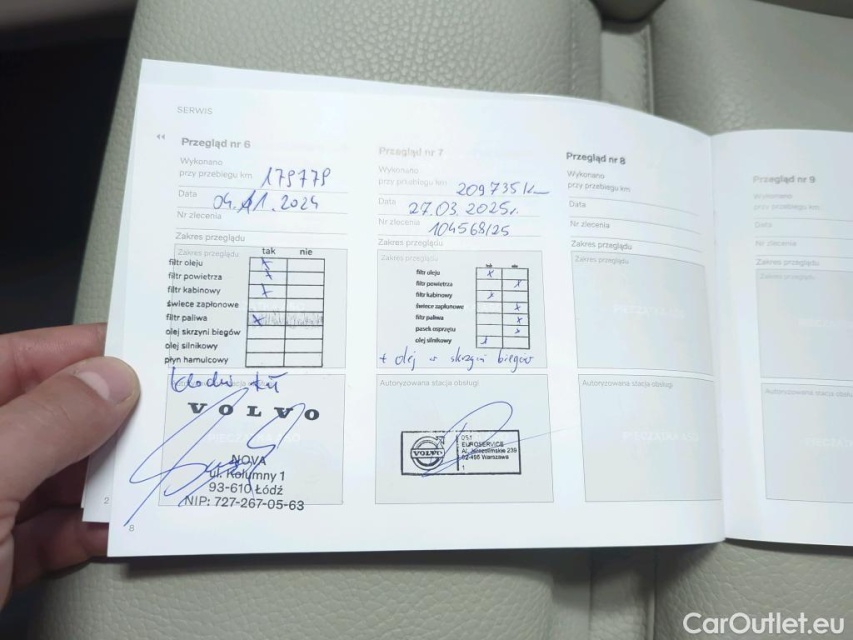 SERWIS
Przegląd nr 6
Wykonano
przy przebiegu km 179779
Data 04.11.2024
Nr zlecenia
Zakres przeglądu
Zakres przeglądu
tak nie
filtr oleju x
filtr powietrza x
filtr kabinowy x
świece zapłonowe
filtr paliwa x
olej skrzyni biegów
olej silnikowy
płyn hamulcowy
VOLVO
NOVA
ul. Kolumny 1
93-610 Łódź
NIP: 727-267-05-63
8
Przegląd nr 7
Wykonano
przy przebiegu km 209735 km
Data 27.03.2025r.
Nr zlecenia 104568/25
Zakres przeglądu
Zakres przeglądu
tak nie
filtr oleju x
filtr powietrza x
filtr kabinowy x
świece zapłonowe x
filtr paliwa x
pasek osprzętu x
olej silnikowy x
+ olej w skrzyni biegów
Autoryzowana stacja obsługi
VOLVO
051
EUROSERVICE
Al. Jerozolimskie 239
02-495 Warszawa
1
Przegląd nr 8
Wykonano
przy przebiegu km
Data
Nr zlecenia
Zakres przeglądu
Zakres przeglądu
Autoryzowana stacja obsługi
Przegląd nr 9
Wykonano
przy przebiegu km
Data
Nr zlecenia
Zakres przeglądu
Zakres przeglądu
Autoryzowana stacja obsługi
2
CarOutlet.eu